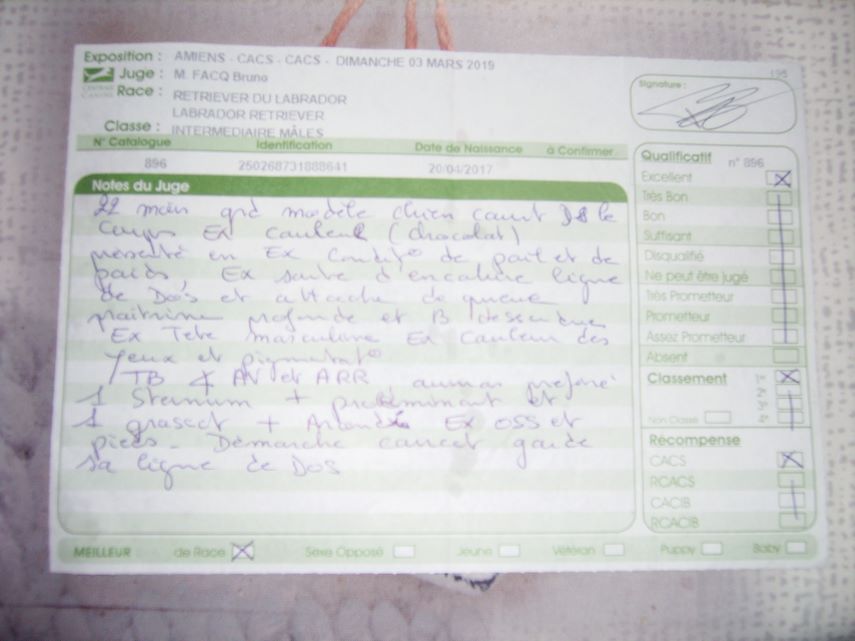 Exposition : AMIENS - CACS - CACS - DIMANCHE 03 MARS 2019
Juge : M. FACQ Bruno
CENTRALE CANINE
Race : RETRIEVER DU LABRADOR
LABRADOR RETRIEVER
Classe : INTERMEDIAIRE MÂLES
195
Signature :
N° Catalogue Identification Date de Naissance à Confirmer
896 250268731888641 20/04/2017
Notes du Juge
22 mois grd modèle chien court Ds le
Corps Ex couleur (chocolat)
présenté en Ex Condit° de poil et de
poids, Ex sortie d'encolure ligne
de Dos et attache de queue
poitrine profonde et B descendue
Ex Tete masculine Ex couleur des
yeux et pigmentat°
TB AV et ARR aurais préféré
1 Sternum + proéminent et
1 grasset + Ex oss et
pieds - Démarche correct garde
sa ligne de Dos
Qualificatif n° 896
Excellent
Très Bon
Bon
Suffisant
Disqualifié
Ne peut être jugé
Très Prometteur
Prometteur
Assez Prometteur
Absent
Classement 1er
2e
3e
4e
Non Classé
Récompense
CACS
RCACS
CACIB
RCACIB
MEILLEUR de Race Sexe Opposé Jeune Vétéran Puppy Baby